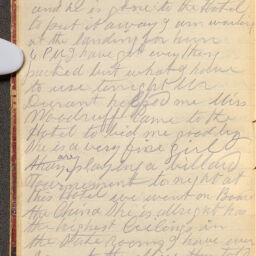 and he is gone to the Hotel
to put it away I am waiting
at the landing for him
6 P.M. I have got everything
packed but what I have
to use tonight Mr
Durant helped me Miss
Woodruff came to the
Hotel to bid me goodby
She is a very fine girl
they are playing a billiard
tournement tonight at
this Hotel we went on Board
the China She is allright has
the highest ceilings in
the State Rooms I have ever